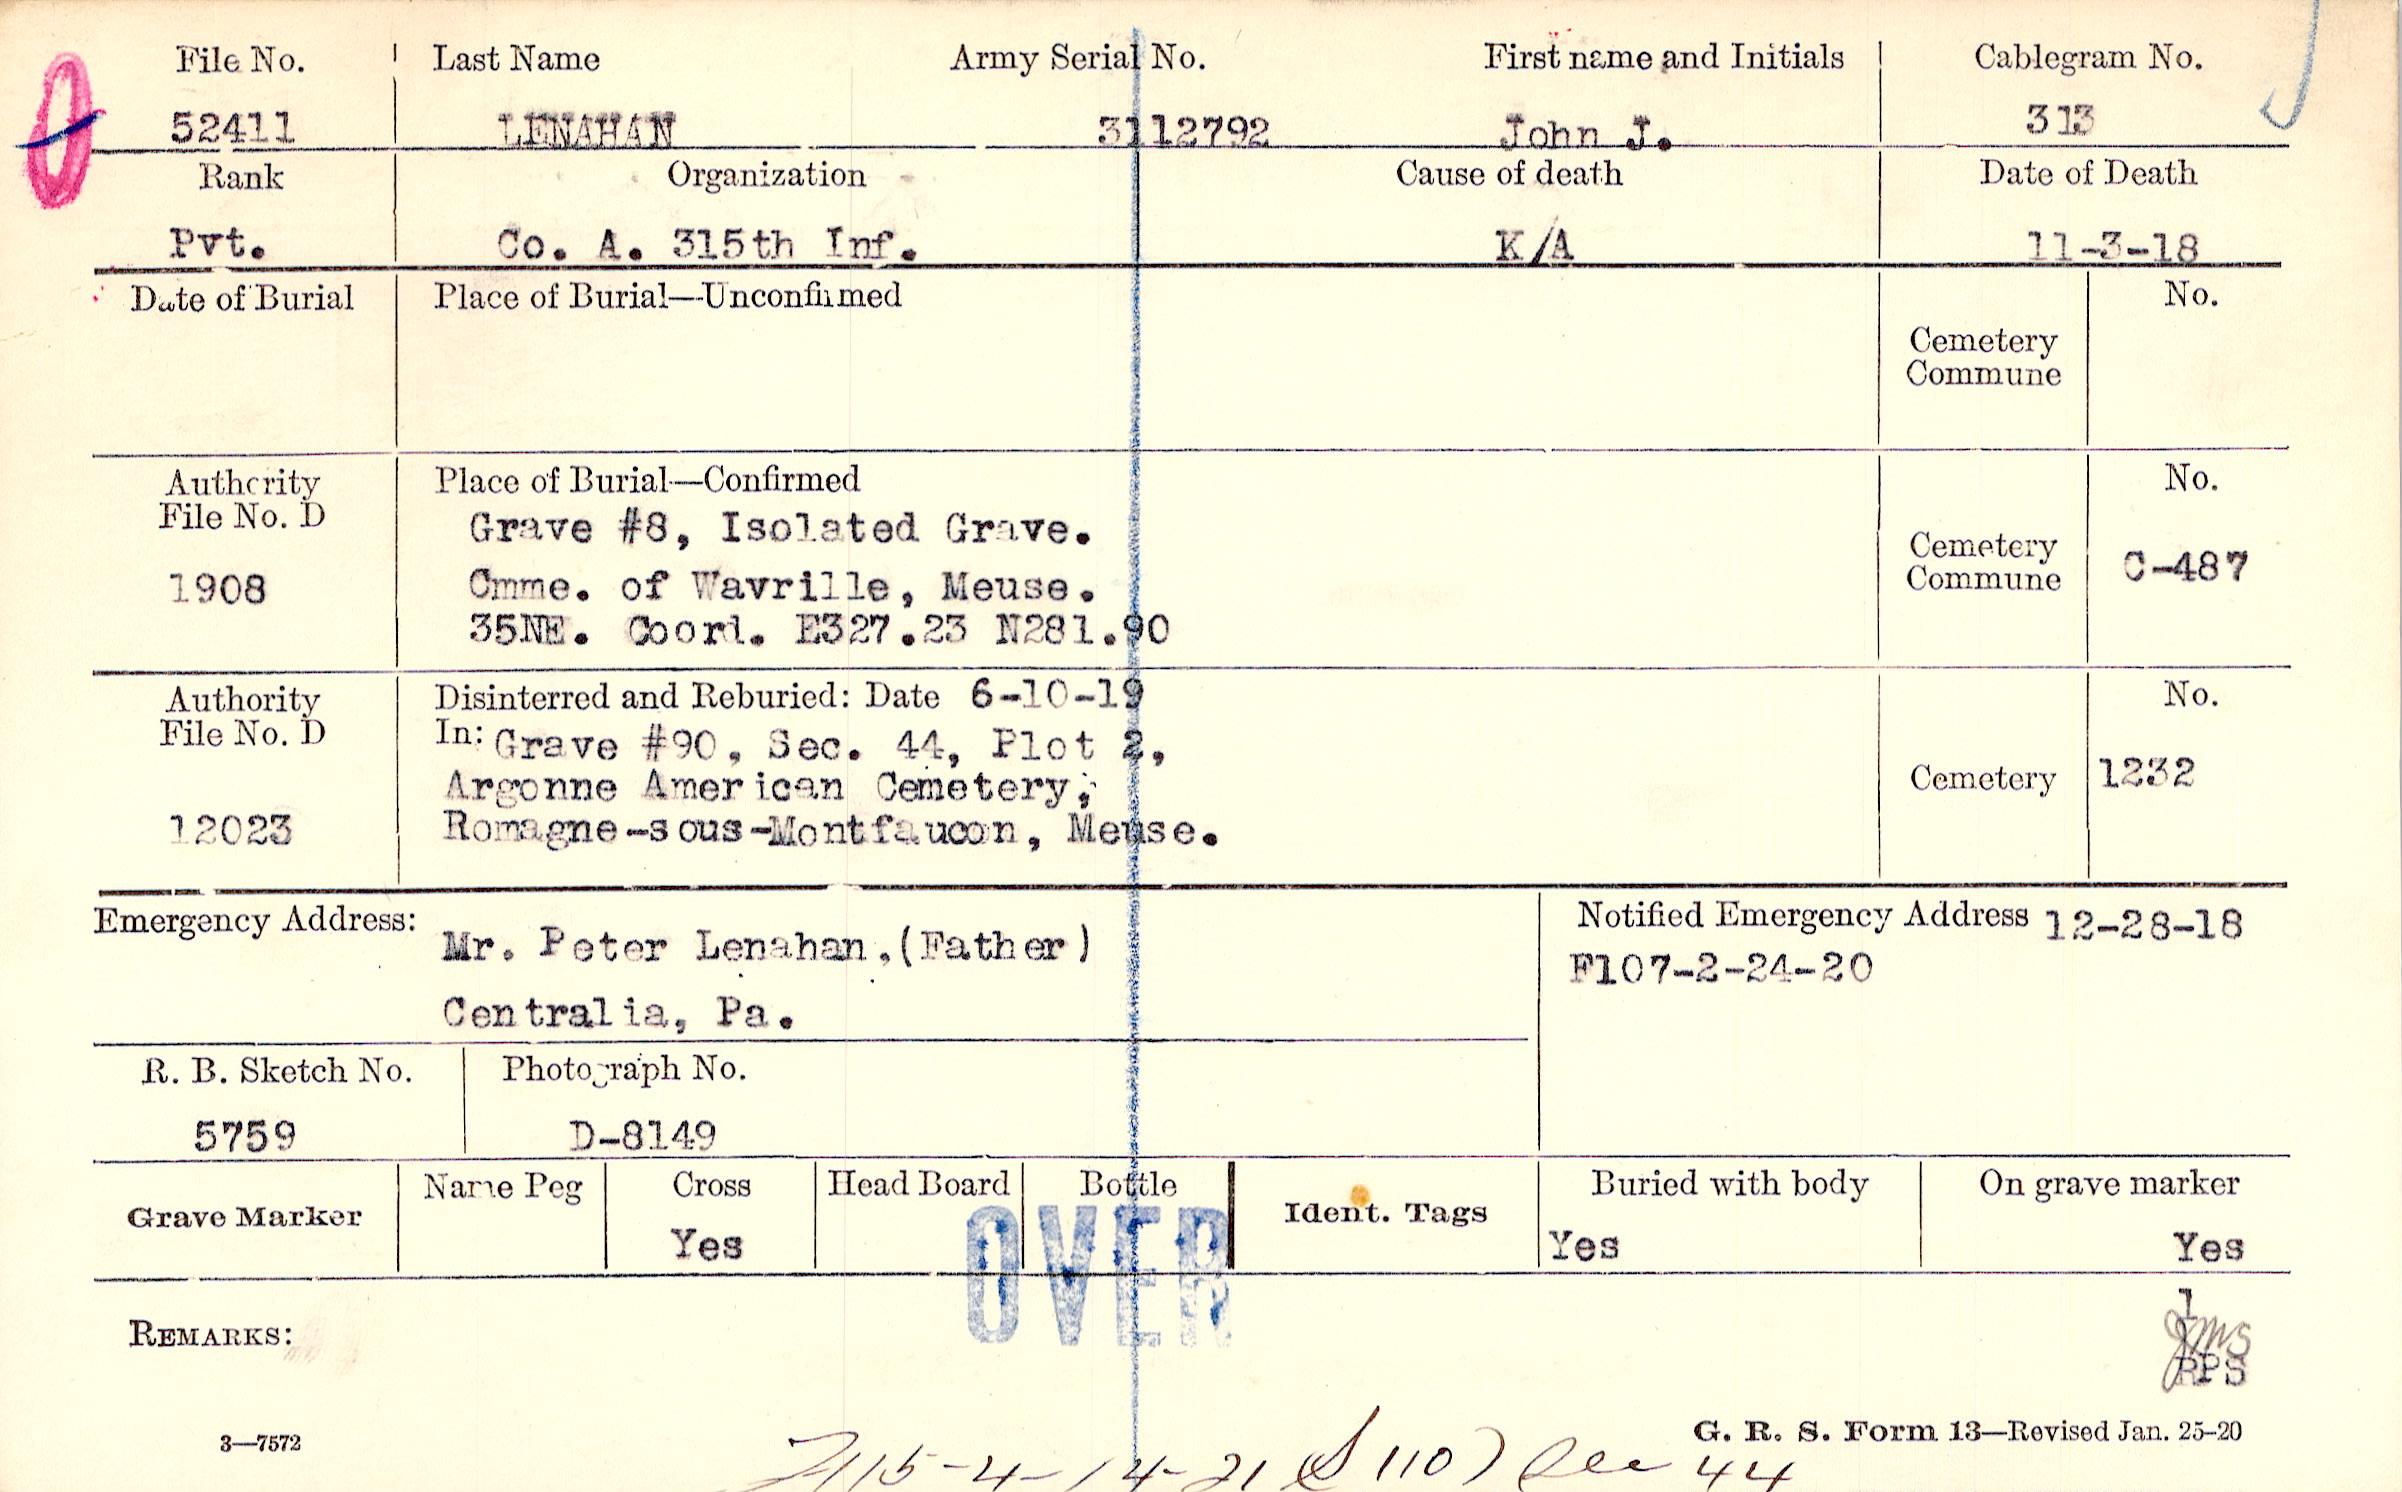 File No. Last Name Army Serial No. First name and Initials Cablegram No.
52411 LENAHAN 3112792 John J. 313
Rank Organization Cause of death Date of Death
Pvt. Co. A. 315th Inf. K/A 11-3-18
Date of Burial Place of Burial—Unconfirmed No.
Cemetery
Commune
Authority Place of Burial—Confirmed No.
File No. D Grave #8, Isolated Grave.
Cemetery
Commune C-487
1908 Cmme. of Wavrille, Meuse.
35NE. Coord. E327.23 N281.90
Authority Disinterred and Reburied: Date 6-10-19 No.
File No. D In: Grave #90, Sec. 44, Plot 2,
Argonne American Cemetery, Cemetery 1232
12023 Romagne-sous-Montfaucon, Meuse.
Emergency Address: Notified Emergency Address 12-28-18
Mr. Peter Lenahan,(Father) F107-2-24-20
Centralia, Pa.
R. B. Sketch No. Photograph No.
5759 D-8149
Name Peg Cross Head Board Bottle Buried with body On grave marker
Grave Marker Ident. Tags
Yes Yes Yes
OVER
1
REMARKS: JMS
RPS
3—7572 G. R. S. Form 13—Revised Jan. 25-20
115-4-14-21 110) 44